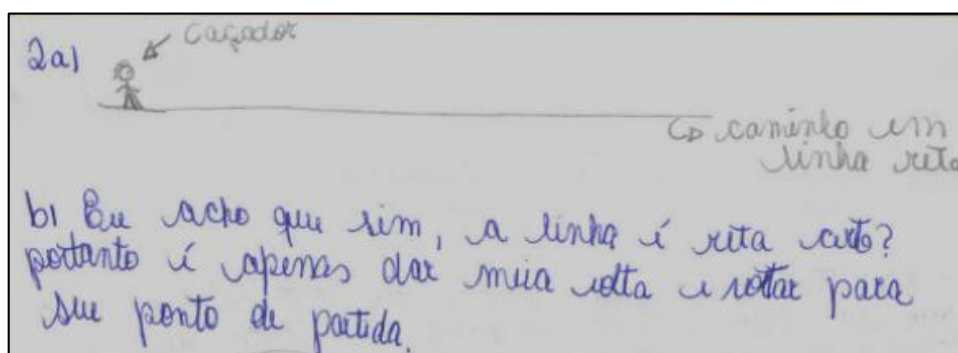 2a) Caçador
caminho em
linha reta
b) Eu acho que sim, a linha é reta certo?
portanto é apenas dar meia volta e voltar para
seu ponto de partida.